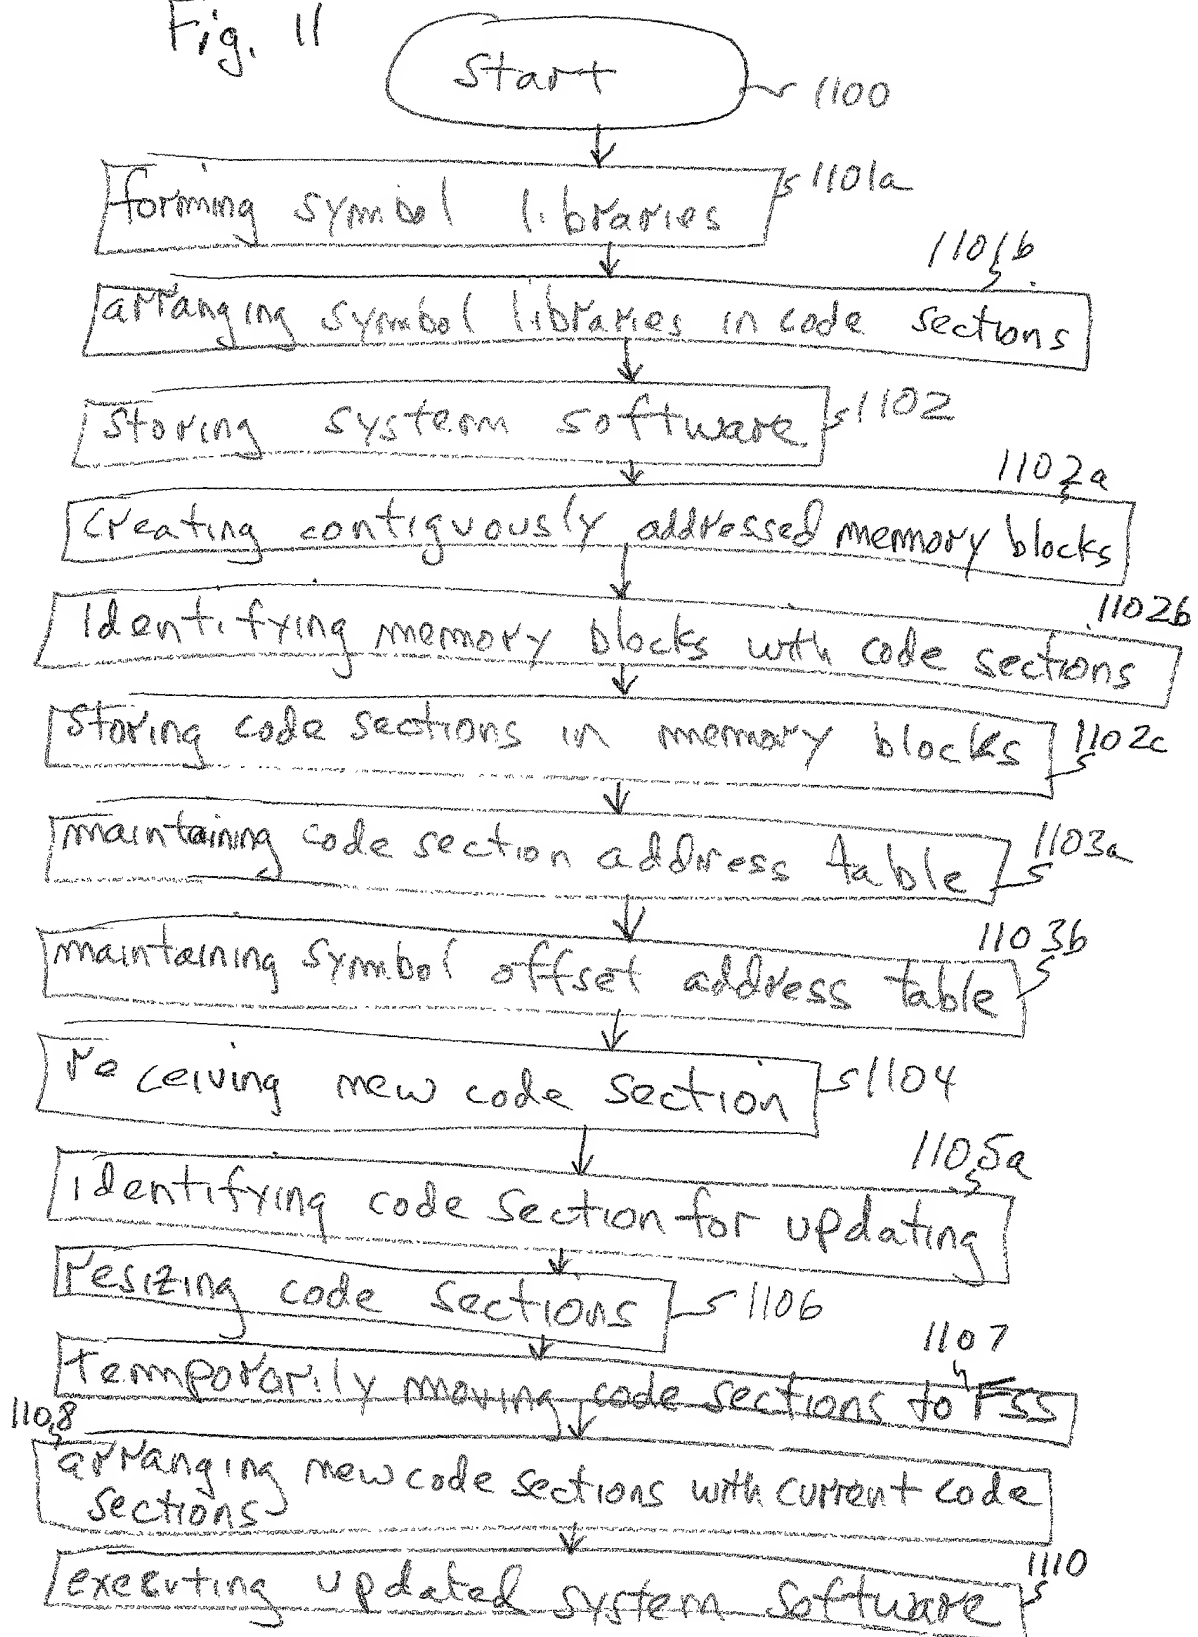 Fig. 11
Start
1100
forming symbol libraries
1101a
1101b
arranging symbol libraries in code sections
storing system software
1102
1102a
creating contiguously addressed memory blocks
1102b
Identifying memory blocks with code sections
Storing code sections in memory blocks
1102c
maintaining code section address table
1103a
1103b
maintaining symbol offset address table
receiving new code section
1104
1105a
identifying code section for updating
resizing code sections
1106
1107
temporarily moving code sections to FSS
1108
arranging new code sections with current code
sections
1110
executing updated system software